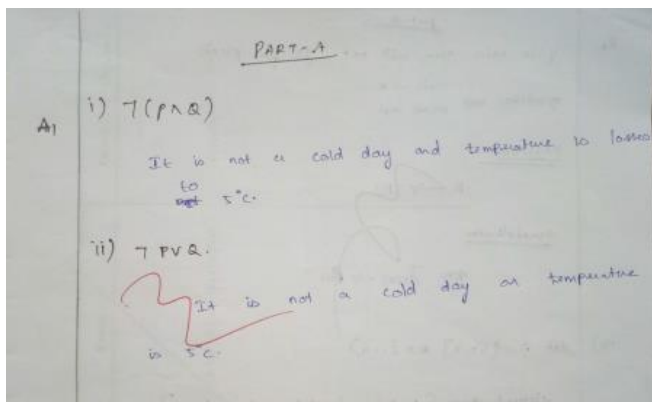 PART-A
A1 i) ¬(P∧Q)
It is not a cold day and temperature is
to
5°C.
ii) ¬ P∨Q.
It is not a cold day or temperature
is 5°C.